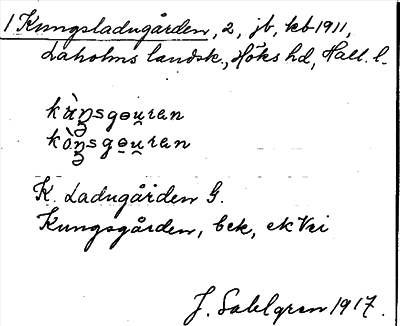 1 Kungsladugården, 2, jb, kb 1911,
Laholms landsk., Höks hd, Hall. l.
kùŋsgɵu̯ran
kòŋsgɵu̯ran
K. Ladugården G.
Kungsgården, bek, ek
J. Sahlgren 1917.